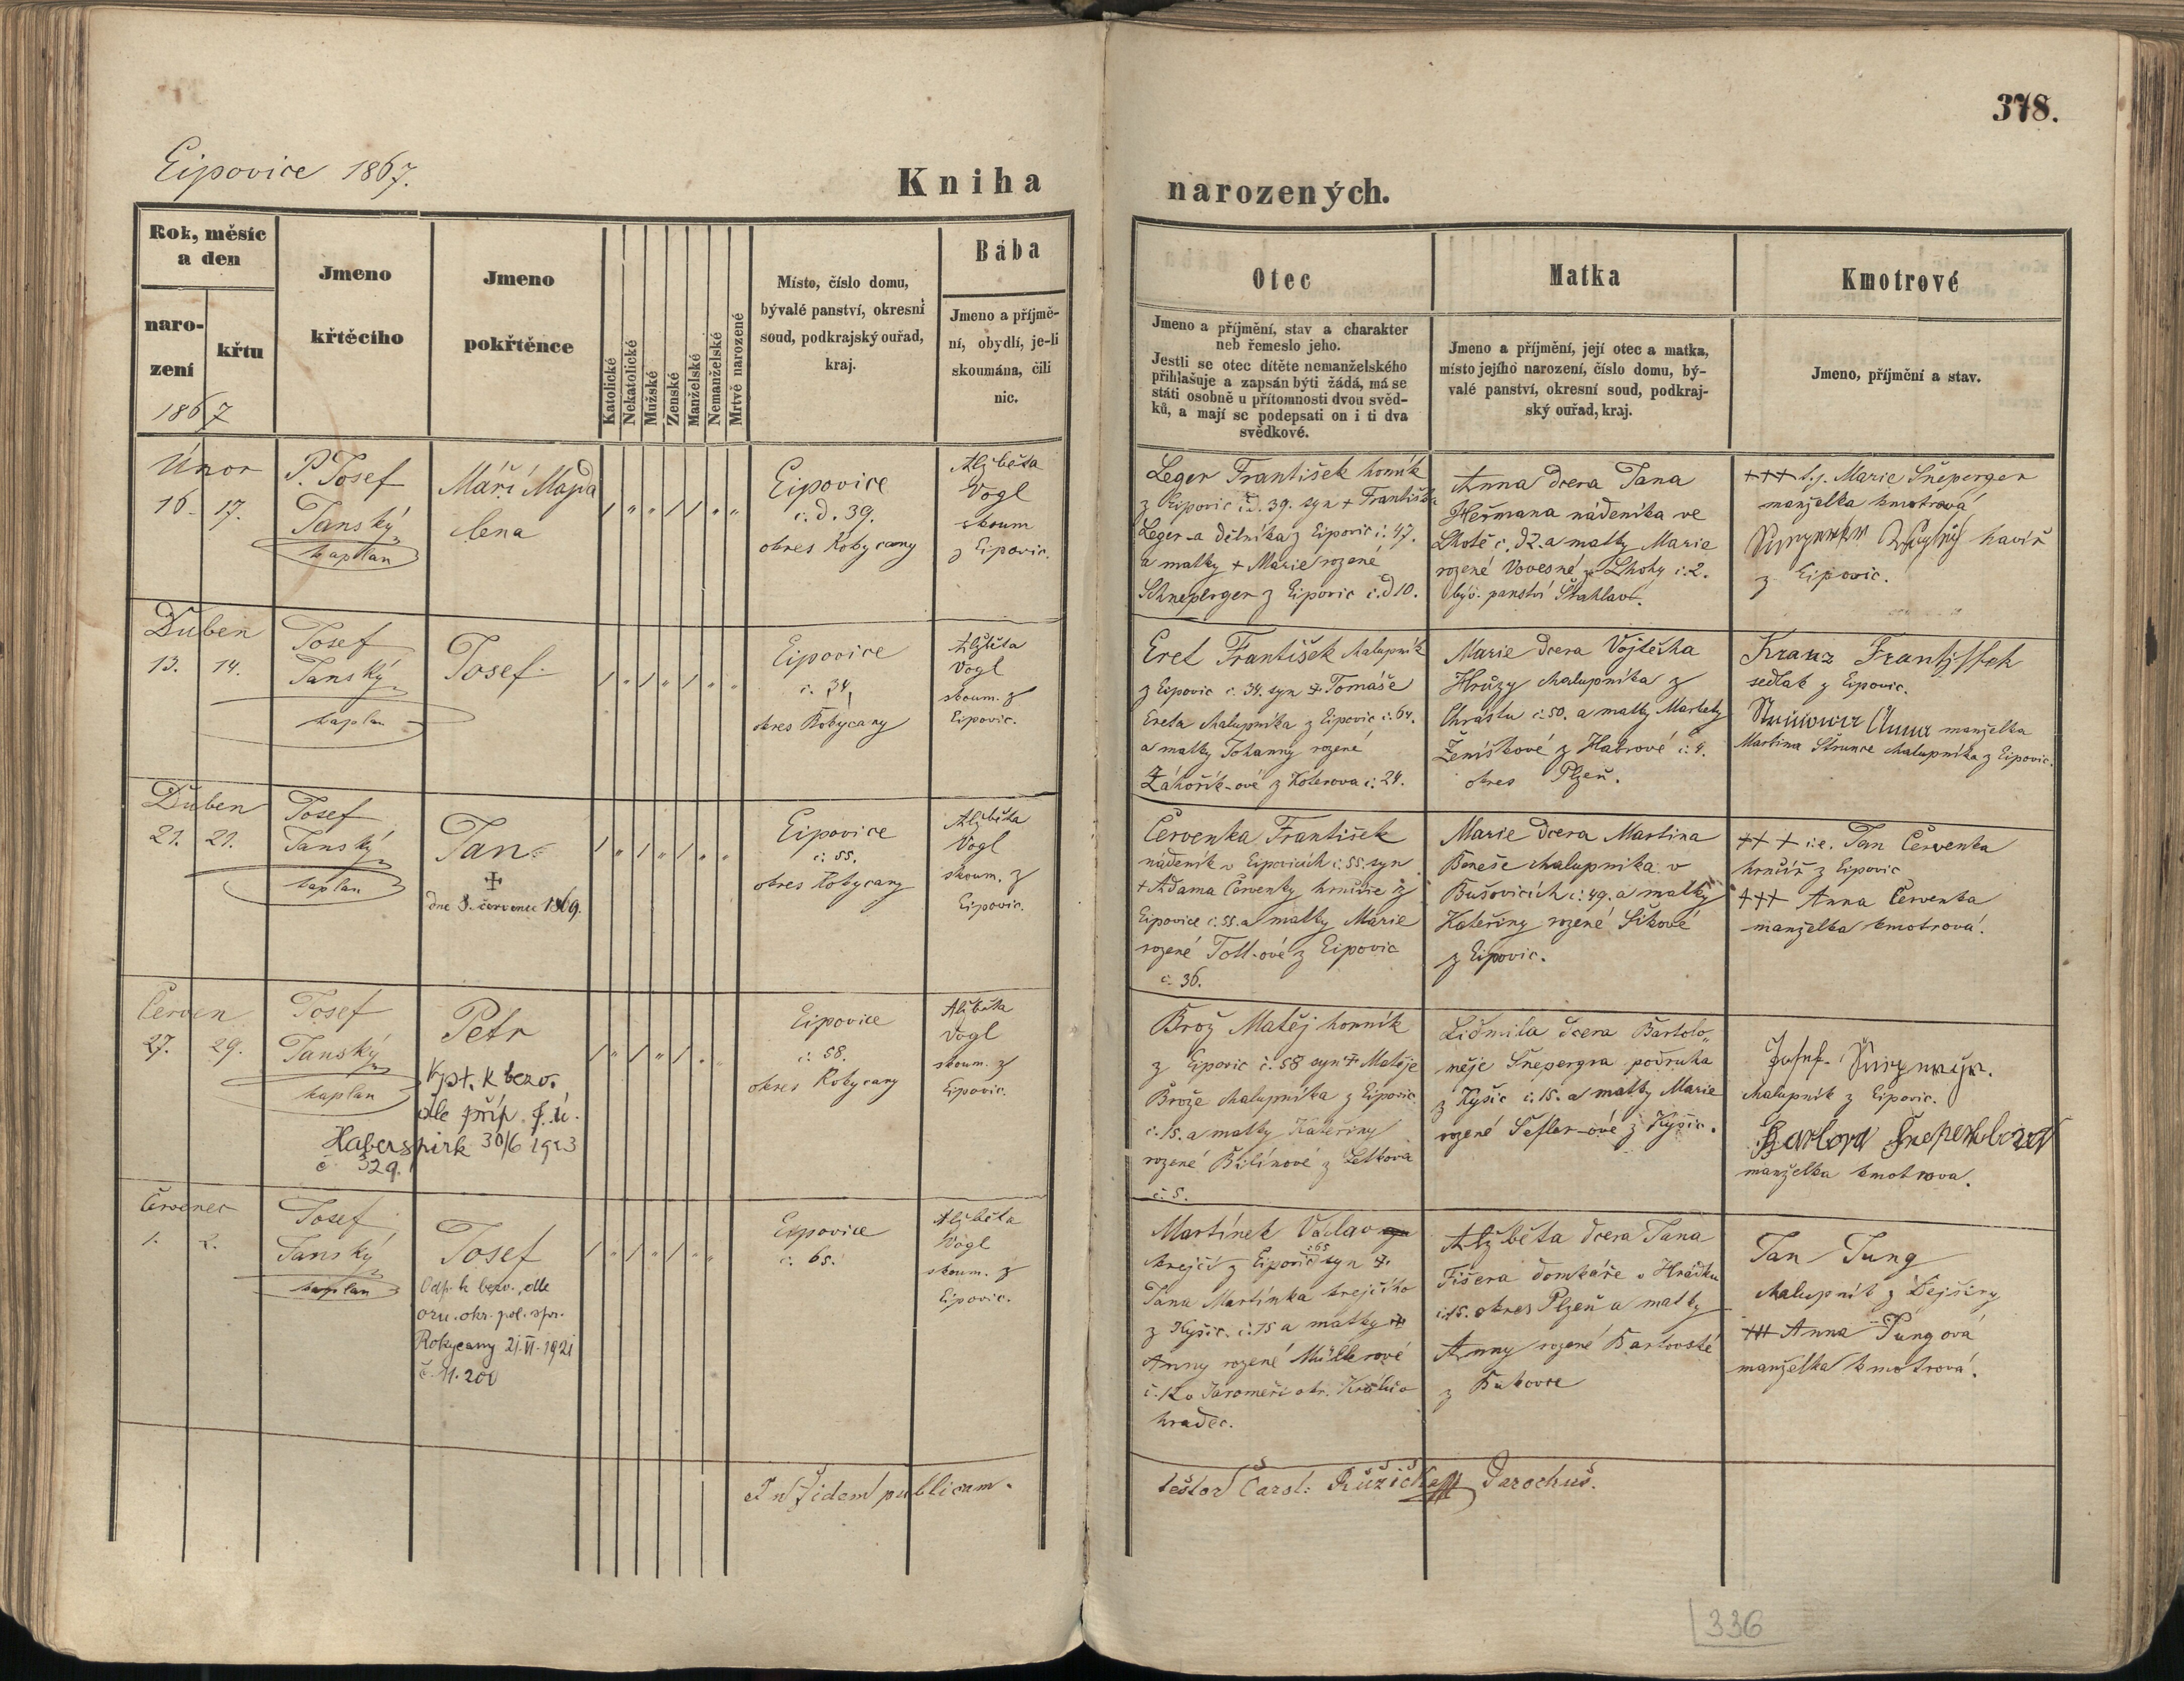 378.
Eipovice 1867.
Kniha narozených.
Rok, měsíc
a den
naro-
zení
křtu
1867
Jmeno
křtěcího
Jmeno
pokřtěnce
Katolické
Nekatolické
Mužské
Ženské
Manželské
Nemanželské
Mrtvě narozené
Místo, číslo domu,
bývalé panství, okresní
soud, podkrajský ouřad,
kraj.
Bába
Jmeno a příjmě-
ní, obydlí, je-li
skoumána, čili
nic.
Otec
Jmeno a příjmění, stav a charakter
neb řemeslo jeho.
Jestli se otec dítěte nemanželského
přihlašuje a zapsán býti žádá, má se
státi osobně u přítomnosti dvou svěd-
ků, a mají se podepsati on i ti dva
svědkové.
Matka
Jmeno a příjmění, její otec a matka,
místo jejího narození, číslo domu, bý-
valé panství, okresní soud, podkraj-
ský ouřad, kraj.
Kmotrové
Jmeno, příjmění a stav.
Únor
16. 17.
P. Josef
Janský
kaplan
Máří Majda
lena
Eipovice
č. d. 39.
okres Rokycany
Alžběta
Vogl
skoum
z Eipovic.
Leger František horník
z Eipovic č.d. 39. syn + Františka
Leger-a dělníka z Eipovic č. 47.
a matky + Marie rozené
Schneperger z Eipovic č.d 10.
Anna dcera Jana
Heřmana nádeníka ve
Lhotě č. 32. a matky Marie
rozené Vovesné ze Lhoty č. 2.
býv. panství Štahlav.
+++ t.j. Marie Šneperger
manželka kmotrová
havíř
z Eipovic.
Duben
13. 14.
Josef
Janský
kaplan
Josef.
Eipovice
č. 34.
okres Rokycany
Alžběta
Vogl
skoum. z
Eipovic.
Eret František chalupník
z Eipovic č. 34. syn + Tomáše
Ereta chalupníka z Eipovic č. 64.
a matky Johanny rozené
Záhořík-ové z Koterova č. 24.
Marie dcera Vojtěcha
Hrůzy chalupníka z
Chrástu č. 50. a matky Markety
Ženíškové z Habrové č. 4.
okres Plzeň.
Kranz Frantisstek
sedlak z Eipovic.
Anna manželka
Martina Štrunce chalupníka z Eipovic.
Duben
21. 21.
Josef
Janský
kaplan
Jan
+
dne 3. července 1869.
Eipovice
č. 55.
okres Rokycany
Alžběta
Vogl
skoum. z
Eipovic.
Červenka František
nádeník v Eipovicích č. 55. syn
+ Adama Červenky hrnčíře z
Eipovice č. 55. a matky Marie
rozené Toll-ové z Eipovic
č. 36.
Marie dcera Martina
Beneše chalupníka v
Bušovicích č. 49. a matky
Kateřiny rozené Šikové
z Eipovic.
+++ i.e. Jan Červenka
hrnčíř z Eipovic
+++ Anna Červenka
manželka kmotrová.
Červen
27. 29.
Josef
Janský
kaplan
Petr
Vyst. k bezv.
dle příp. f. ú.
Haberspirk 30/6 1923
č 329.
Eipovice
č. 58.
okres Rokycany
Alžběta
Vogl
skoum. z
Eipovic.
Brož Matěj horník
z Eipovic č. 58 syn + Matěje
Brože chalupníka z Eipovic
č. 15. a matky Kateřiny
rozené Bilínové z Letkova
č. 5.
Lidmila dcera Bartolo-
měje Šnepergra podruha
z Kyšic č. 15. a matky Marie
rozené Šefler-ové z Kyšic.
Josef
chalupník z Eipovic.
Barbora
manželka kmotrova.
Červenec
1. 2.
Josef
Janský
kaplan
Josef
Odp. k bezv., dle
ozn. okr. pol. spr.
Rokycany 21.VI.1921
č. 11.200
Eipovice
č. 65.
Alžběta
Vogl
skoum. z
Eipovic.
Martínek Václav
krejčí z Eipovic č 65 syn +
Jana Martínka krejčího
z Kyšic č. 15 a matky +
Anny rozené Müllerové
č. 12 v Jaroměři okr. Králův
hradec.
Alžběta dcera Jana
Fišera domkáře v Hrádku
č. 15. okres Plzeň a matky
Anny rozené Bartovské
z Bukovce
Jan Jung
chalupník z Dejšiny
+++ Anna Jungová
manželka kmotrová.
In fidem publicam.
testor Carol: Růžička Parochus.
336